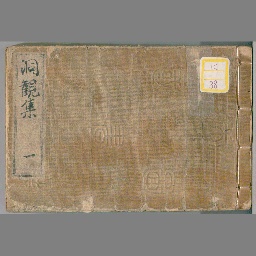 洞観集
一
38